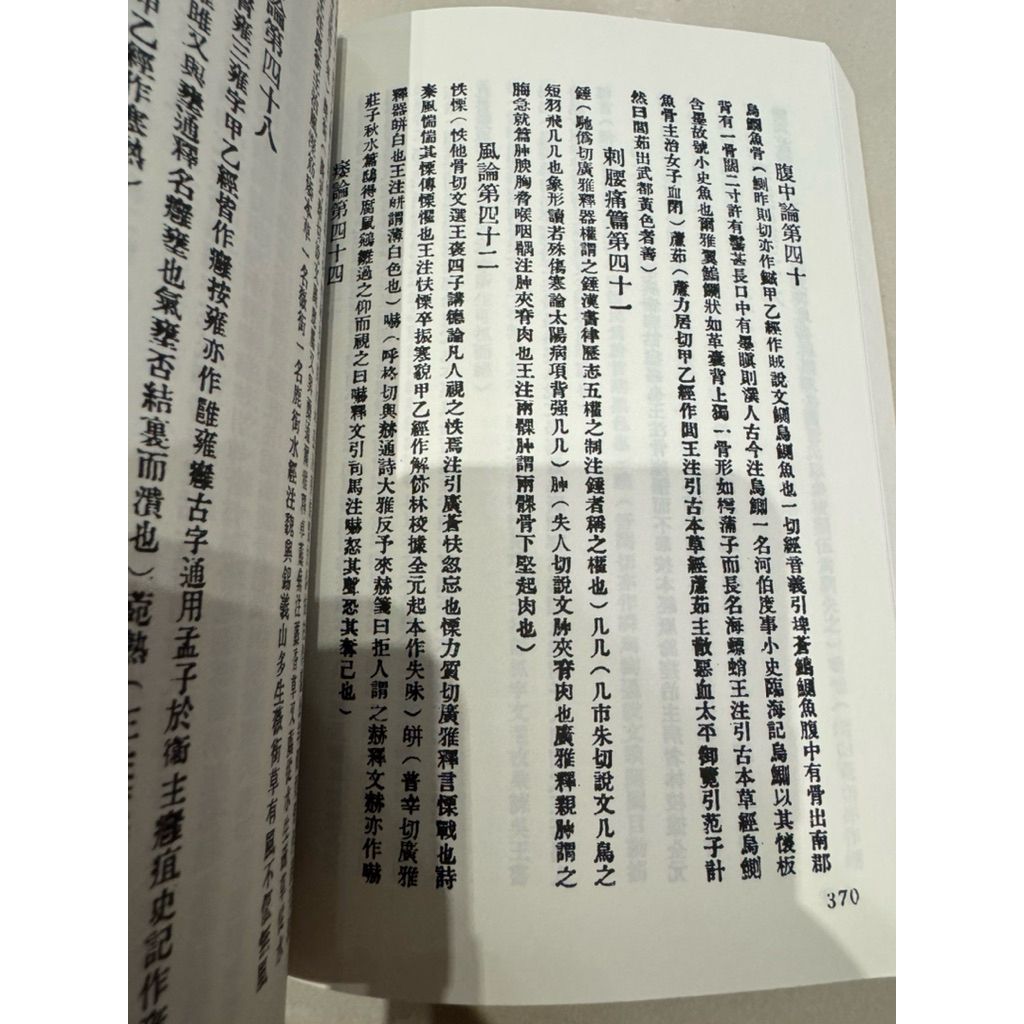 370
腹中論第四十
烏鰂魚骨(鰂昨則切亦作鱡甲乙經作賊說文鰂烏鰂魚也一切經音義引埤蒼鶂鰂魚腹中有骨出南郡
背有一骨闊二寸許有鬐甚長口中有墨瞋則潠人古今注烏鰂一名河伯度事小史臨海記烏鰂以其懷板
含墨故號小史魚也爾雅翼鶂鰂狀如革囊背上獨一骨形如樗蒲子而長名海螵蛸王注引古本草經烏鰂
魚骨主治女子血閉)蘆茹(蘆力居切甲乙經作閭王注引古本草經蘆茹主散惡血太平御覽引范子計
然曰閭茹出武都黃色者善)
刺腰痛篇第四十一
錘(馳偽切廣雅釋器權謂之錘漢書律歷志五權之制注錘者稱之權也)几几(几市朱切說文几鳥之
短羽飛几几也象形讀若殊傷寒論太陽病項背强几几)胂(失人切說文胂夾脊肉也廣雅釋親胂謂之
脢急就篇胂腴胸脅喉咽髃注胂夾脊肉也王注兩髁胂謂兩髁骨下堅起肉也)
風論第四十二
怢慄(怢他骨切文選王褒四子講德論凡人視之怢焉注引廣蒼怢忽忘也慄力質切廣雅釋言慄戰也詩
秦風惴惴其慄傳慄懼也王注怢慄卒振寒貌甲乙經作解㑊林校據全元起本作失味)皏(普幸切廣雅
釋器皏白也王注皏謂薄白色也)嚇(呼格切與赫通詩大雅反予來赫箋曰拒人謂之赫釋文赫亦作嚇
莊子秋水篇鴟得腐鼠鵷雛過之仰而視之曰嚇釋文引司馬注嚇怒其聲恐其奪己也)
痿論第四十四
一名麋銜一名鹿銜水經注魏興錫義山多生薇銜草有風不偃無風
論第四十八
三雍字甲乙經皆作癰按雍亦作雝雍癰古字通用孟子於衛主癰疽史記作
雎又與壅通釋名癰壅也氣壅否結裏而潰也)菀熱(
乙經作塞熱)